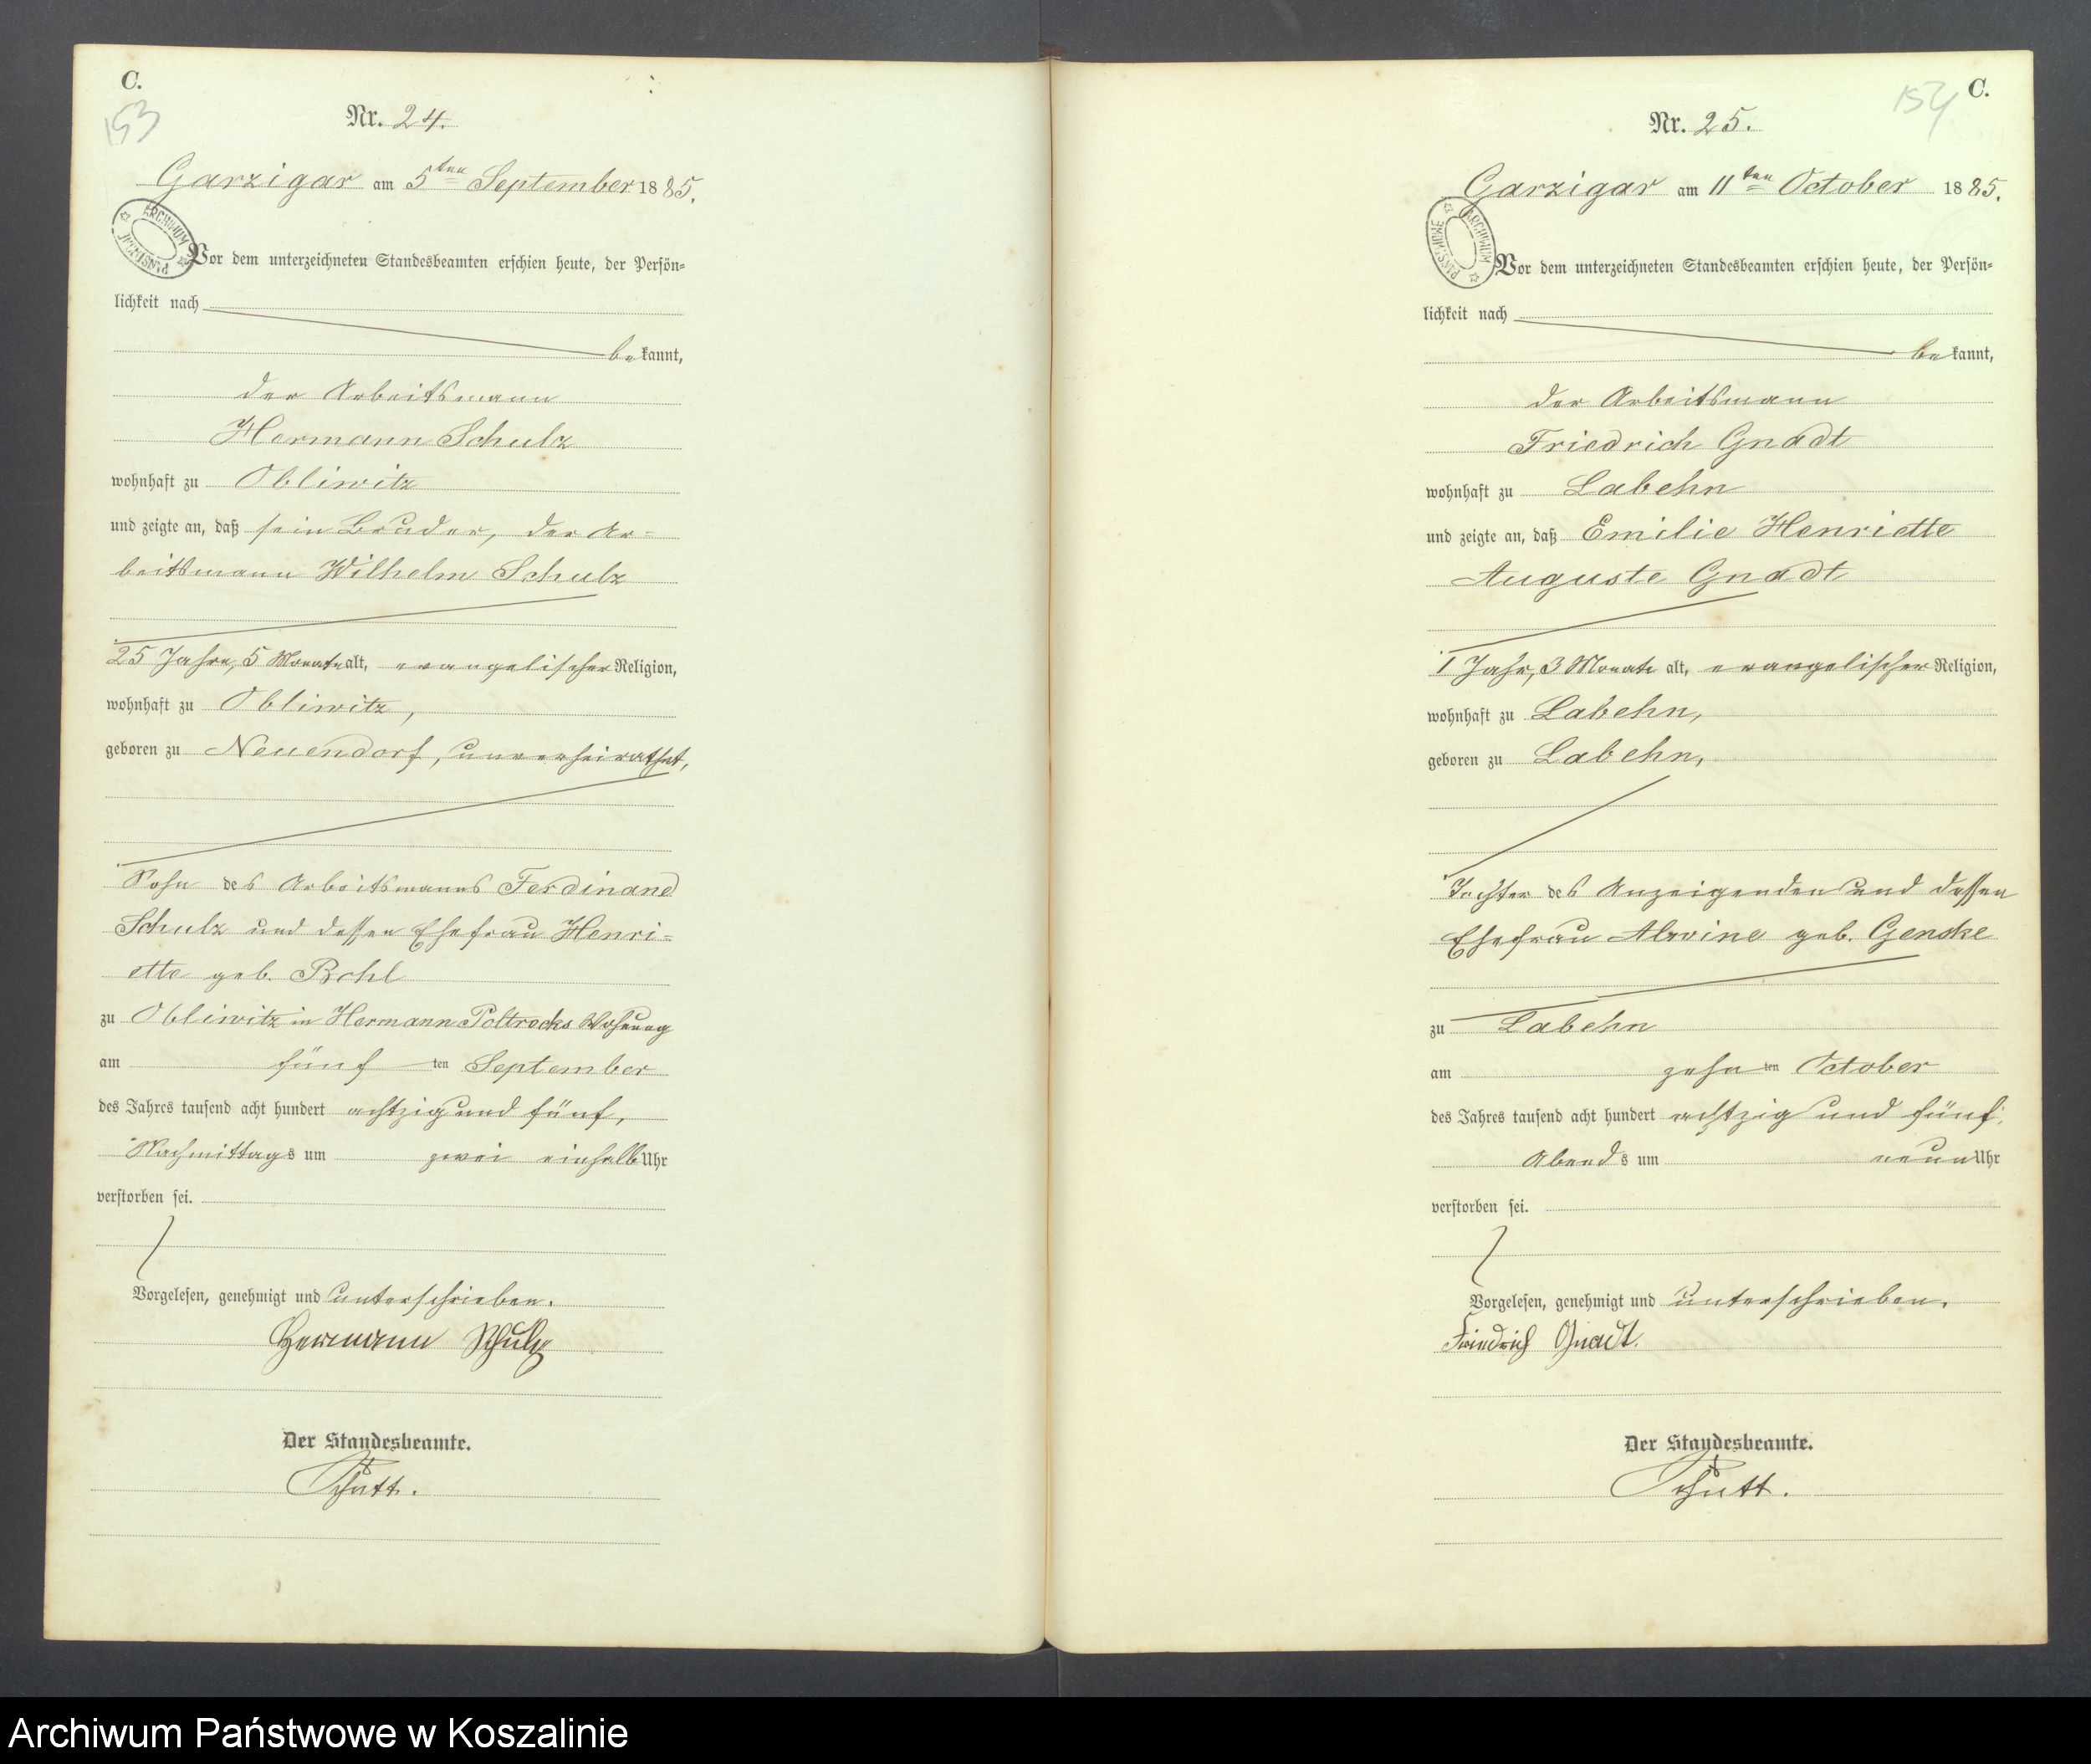 C.
153
Nr. 24.
Garzigar am 5ten September 1885.
ARCHIWUM PAŃSTWOWE
Vor dem unterzeichneten Standesbeamten erschien heute, der Persön=
lichkeit nach
bekannt,
der Arbeitsmann
Hermann Schulz
wohnhaft zu Obliwitz
und zeigte an, daß sein Bruder, der Ar=
beitsmann Wilhelm Schulz
25 Jahre, 5 Monate alt, evangelischer Religion,
wohnhaft zu Obliwitz,
geboren zu Neuendorf, unverheirathet,
Sohn des Arbeitsmanns Ferdinand
Schulz und dessen Ehefrau Henri=
ette geb. Bohl
zu Obliwitz in Hermann Poltrocks Wohnung
am fünf ten September
des Jahres tausend acht hundert achtzig und fünf,
Nachmittags um zwei einhalb Uhr
verstorben sei.
Vorgelesen, genehmigt und unterschrieben.
Hermann Schulz
Der Standesbeamte.
Schutt.
C.
154
Nr. 25.
Garzigar am 11ten October 1885.
ARCHIWUM PAŃSTWOWE
Vor dem unterzeichneten Standesbeamten erschien heute, der Persön=
lichkeit nach
bekannt,
der Arbeitsmann
Friedrich Gnadt
wohnhaft zu Labehn
und zeigte an, daß Emilie Henriette
Auguste Gnadt
1 Jahr, 3 Monate alt, evangelischer Religion,
wohnhaft zu Labehn,
geboren zu Labehn,
Tochter des Anzeigenden und dessen
Ehefrau Alwine geb. Genske
zu Labehn
am zehn ten October
des Jahres tausend acht hundert achtzig und fünf,
Abends um neun Uhr
verstorben sei.
Vorgelesen, genehmigt und unterschrieben.
Friedrich Gnadt.
Der Standesbeamte.
Schutt.
Archiwum Państwowe w Koszalinie